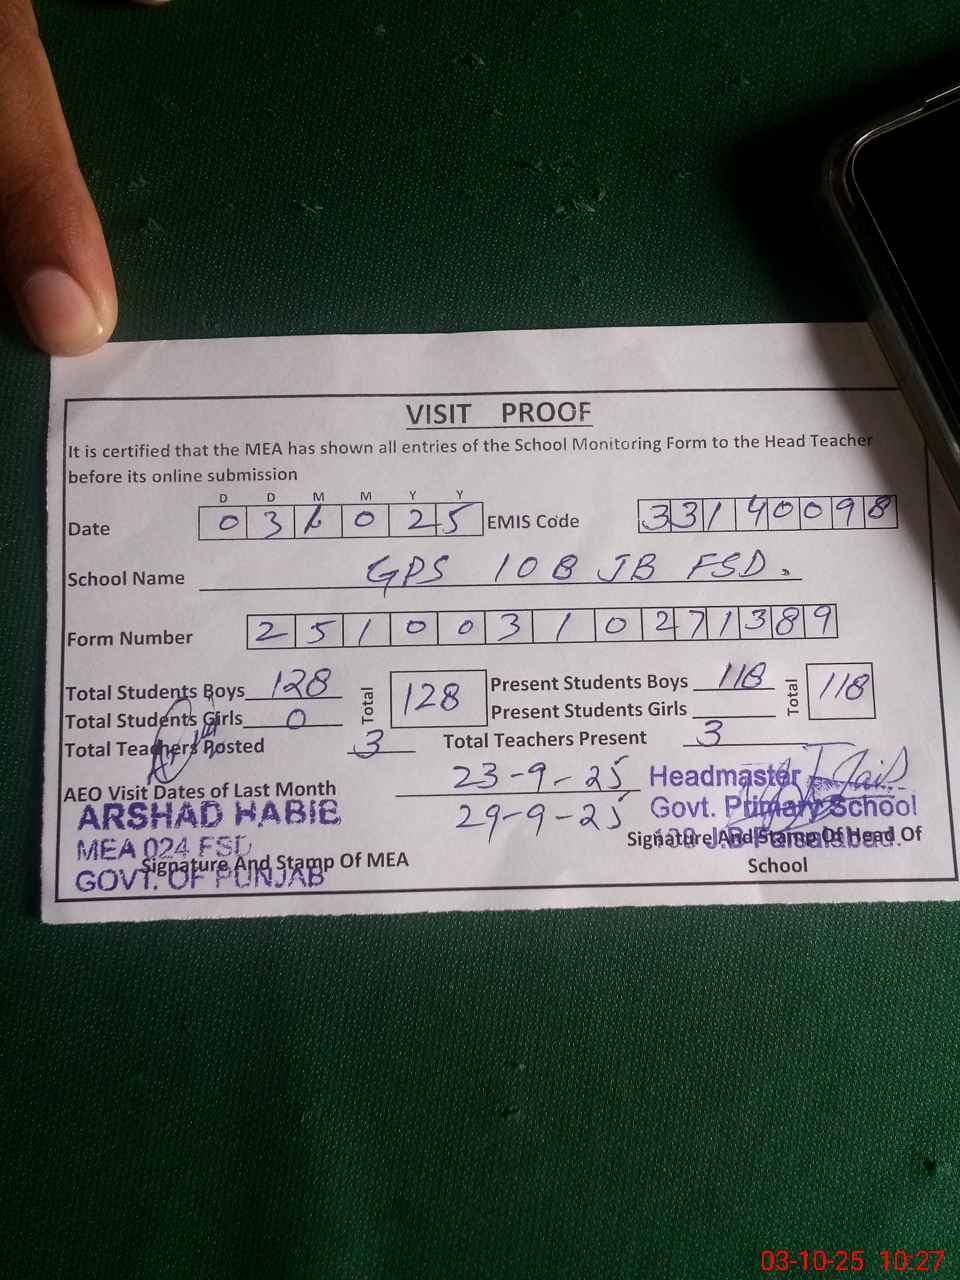 VISIT PROOF
It is certified that the MEA has shown all entries of the School Monitoring Form to the Head Teacher
before its online submission
D D M M Y Y
Date 0 3 1 0 2 5 EMIS Code 3 3 1 4 0 0 9 8
School Name GPS 108 JB FSD.
Form Number 2 5 1 0 0 3 1 0 2 7 1 3 8 9
Total Students Boys 128 Total 128 Present Students Boys 118 Total 118
Total Students Girls 0 Present Students Girls
Total Teachers Posted 3 Total Teachers Present 3
AEO Visit Dates of Last Month 23-9-25
29-9-25
Headmaster
Govt. Primary School
J.B Faisalabad.
Signature And Stamp Of Head Of
School
ARSHAD HABIB
MEA 024 FSD
GOVT. OF PUNJAB
Signature And Stamp Of MEA
03-10-25 10:27